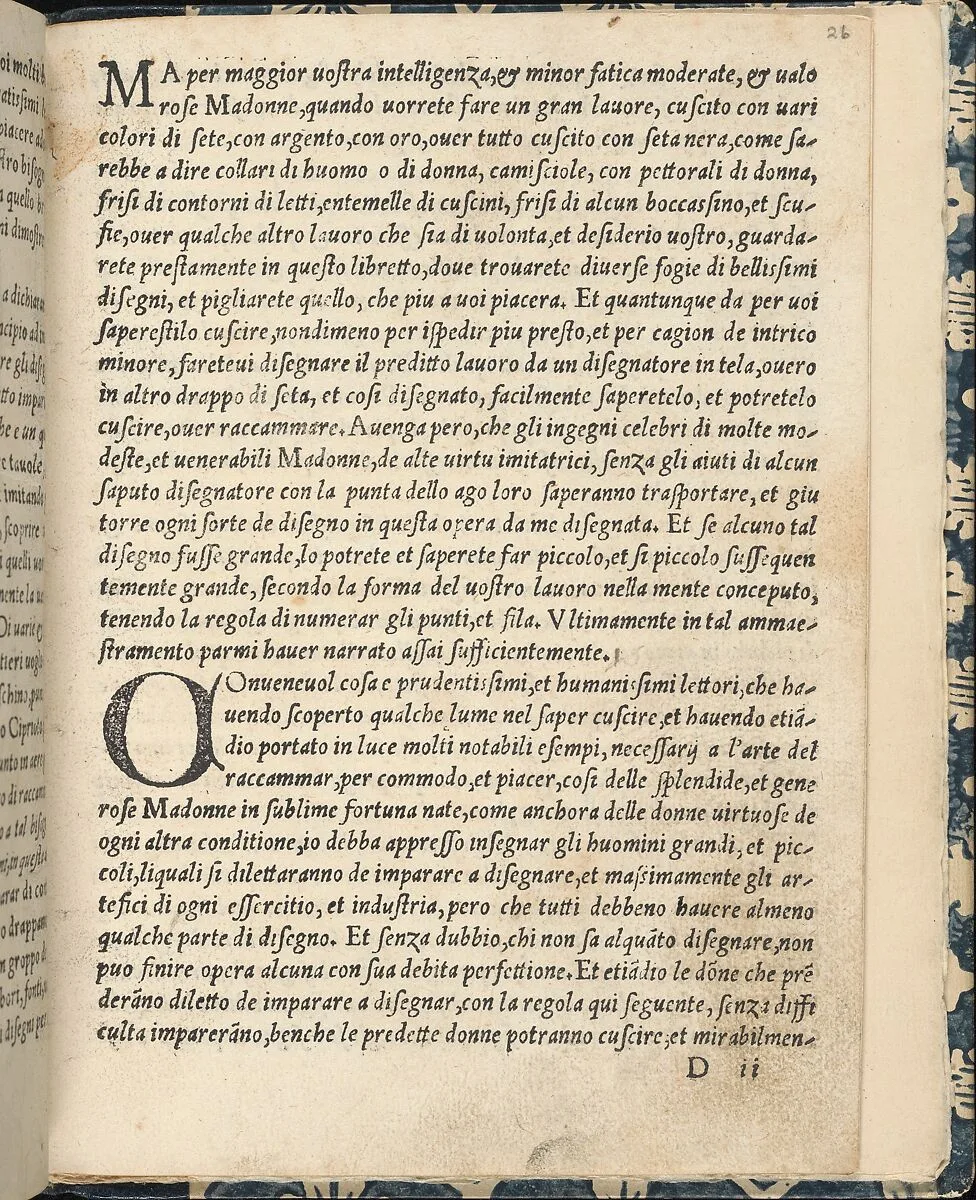 26
MA per maggior uostra intelligenza,& minor fatica moderate,& ualo
rose Madonne,quando uorrete fare un gran lauore, cuscito con uari
colori di sete,con argento,con oro,ouer tutto cuscito con seta nera,come sa-
rebbe a dire collari di huomo o di donna, camisciole, con pettorali di donna,
frisi di contorni di letti,entemelle di cuscini, frisi di alcun boccassino,et scu-
fie,ouer qualche altro lauoro che sia di uolonta,et desiderio uostro,guarda-
rete prestamente in questo libretto,doue trouarete diuerse fogie di bellissimi
disegni, et pigliarete quello, che piu a uoi piacera. Et quantunque da per uoi
saperestilo cuscire,nondimeno per ispedir piu presto,et per cagion de intrico
minore,fareteui disegnare il preditto lauoro da un disegnatore in tela,ouero
in altro drappo di seta, et cosi disegnato, facilmente saperetelo, et potretelo
cuscire,ouer raccammare.Auenga pero,che gli ingegni celebri di molte mo-
deste,et uenerabili Madonne,de alte uirtu imitatrici, senza gli aiuti di alcun
saputo disegnatore con la punta dello ago loro saperanno trasportare, et giu
torre ogni sorte de disegno in questa opera da me disegnata. Et se alcuno tal
disegno fusse grande,lo potrete et saperete far piccolo,et si piccolo sussequen
temente grande, secondo la forma del uostro lauoro nella mente conceputo,
tenendo la regola di numerar gli punti,et fila. Vltimamente in tal ammae-
stramento parmi hauer narrato assai sufficientemente.
COnueneuol cosa e prudentissimi,et humanissimi lettori,che ha-
uendo scoperto qualche lume nel saper cuscire,et hauendo etiã-
dio portato in luce molti notabili esempi, necessarij a l'arte del
raccammar,per commodo,et piacer,cosi delle splendide,et gene
rose Madonne in sublime fortuna nate,come anchora delle donne uirtuose de
ogni altra conditione,io debba appresso insegnar gli huomini grandi, et pic-
coli,liquali si dilettaranno de imparare a disegnare,et massimamente gli ar-
tefici di ogni essercitio, et industria,pero che tutti debbeno hauere almeno
qualche parte di disegno. Et senza dubbio,chi non sa alquãto disegnare,non
puo finire opera alcuna con sua debita perfettione.Et etiãdio le dõne che prẽ
derãno diletto de imparare a disegnar,con la regola qui seguente, senza diffi
culta imparerãno,benche le predette donne potranno cuscire,et mirabilmen-
D ii